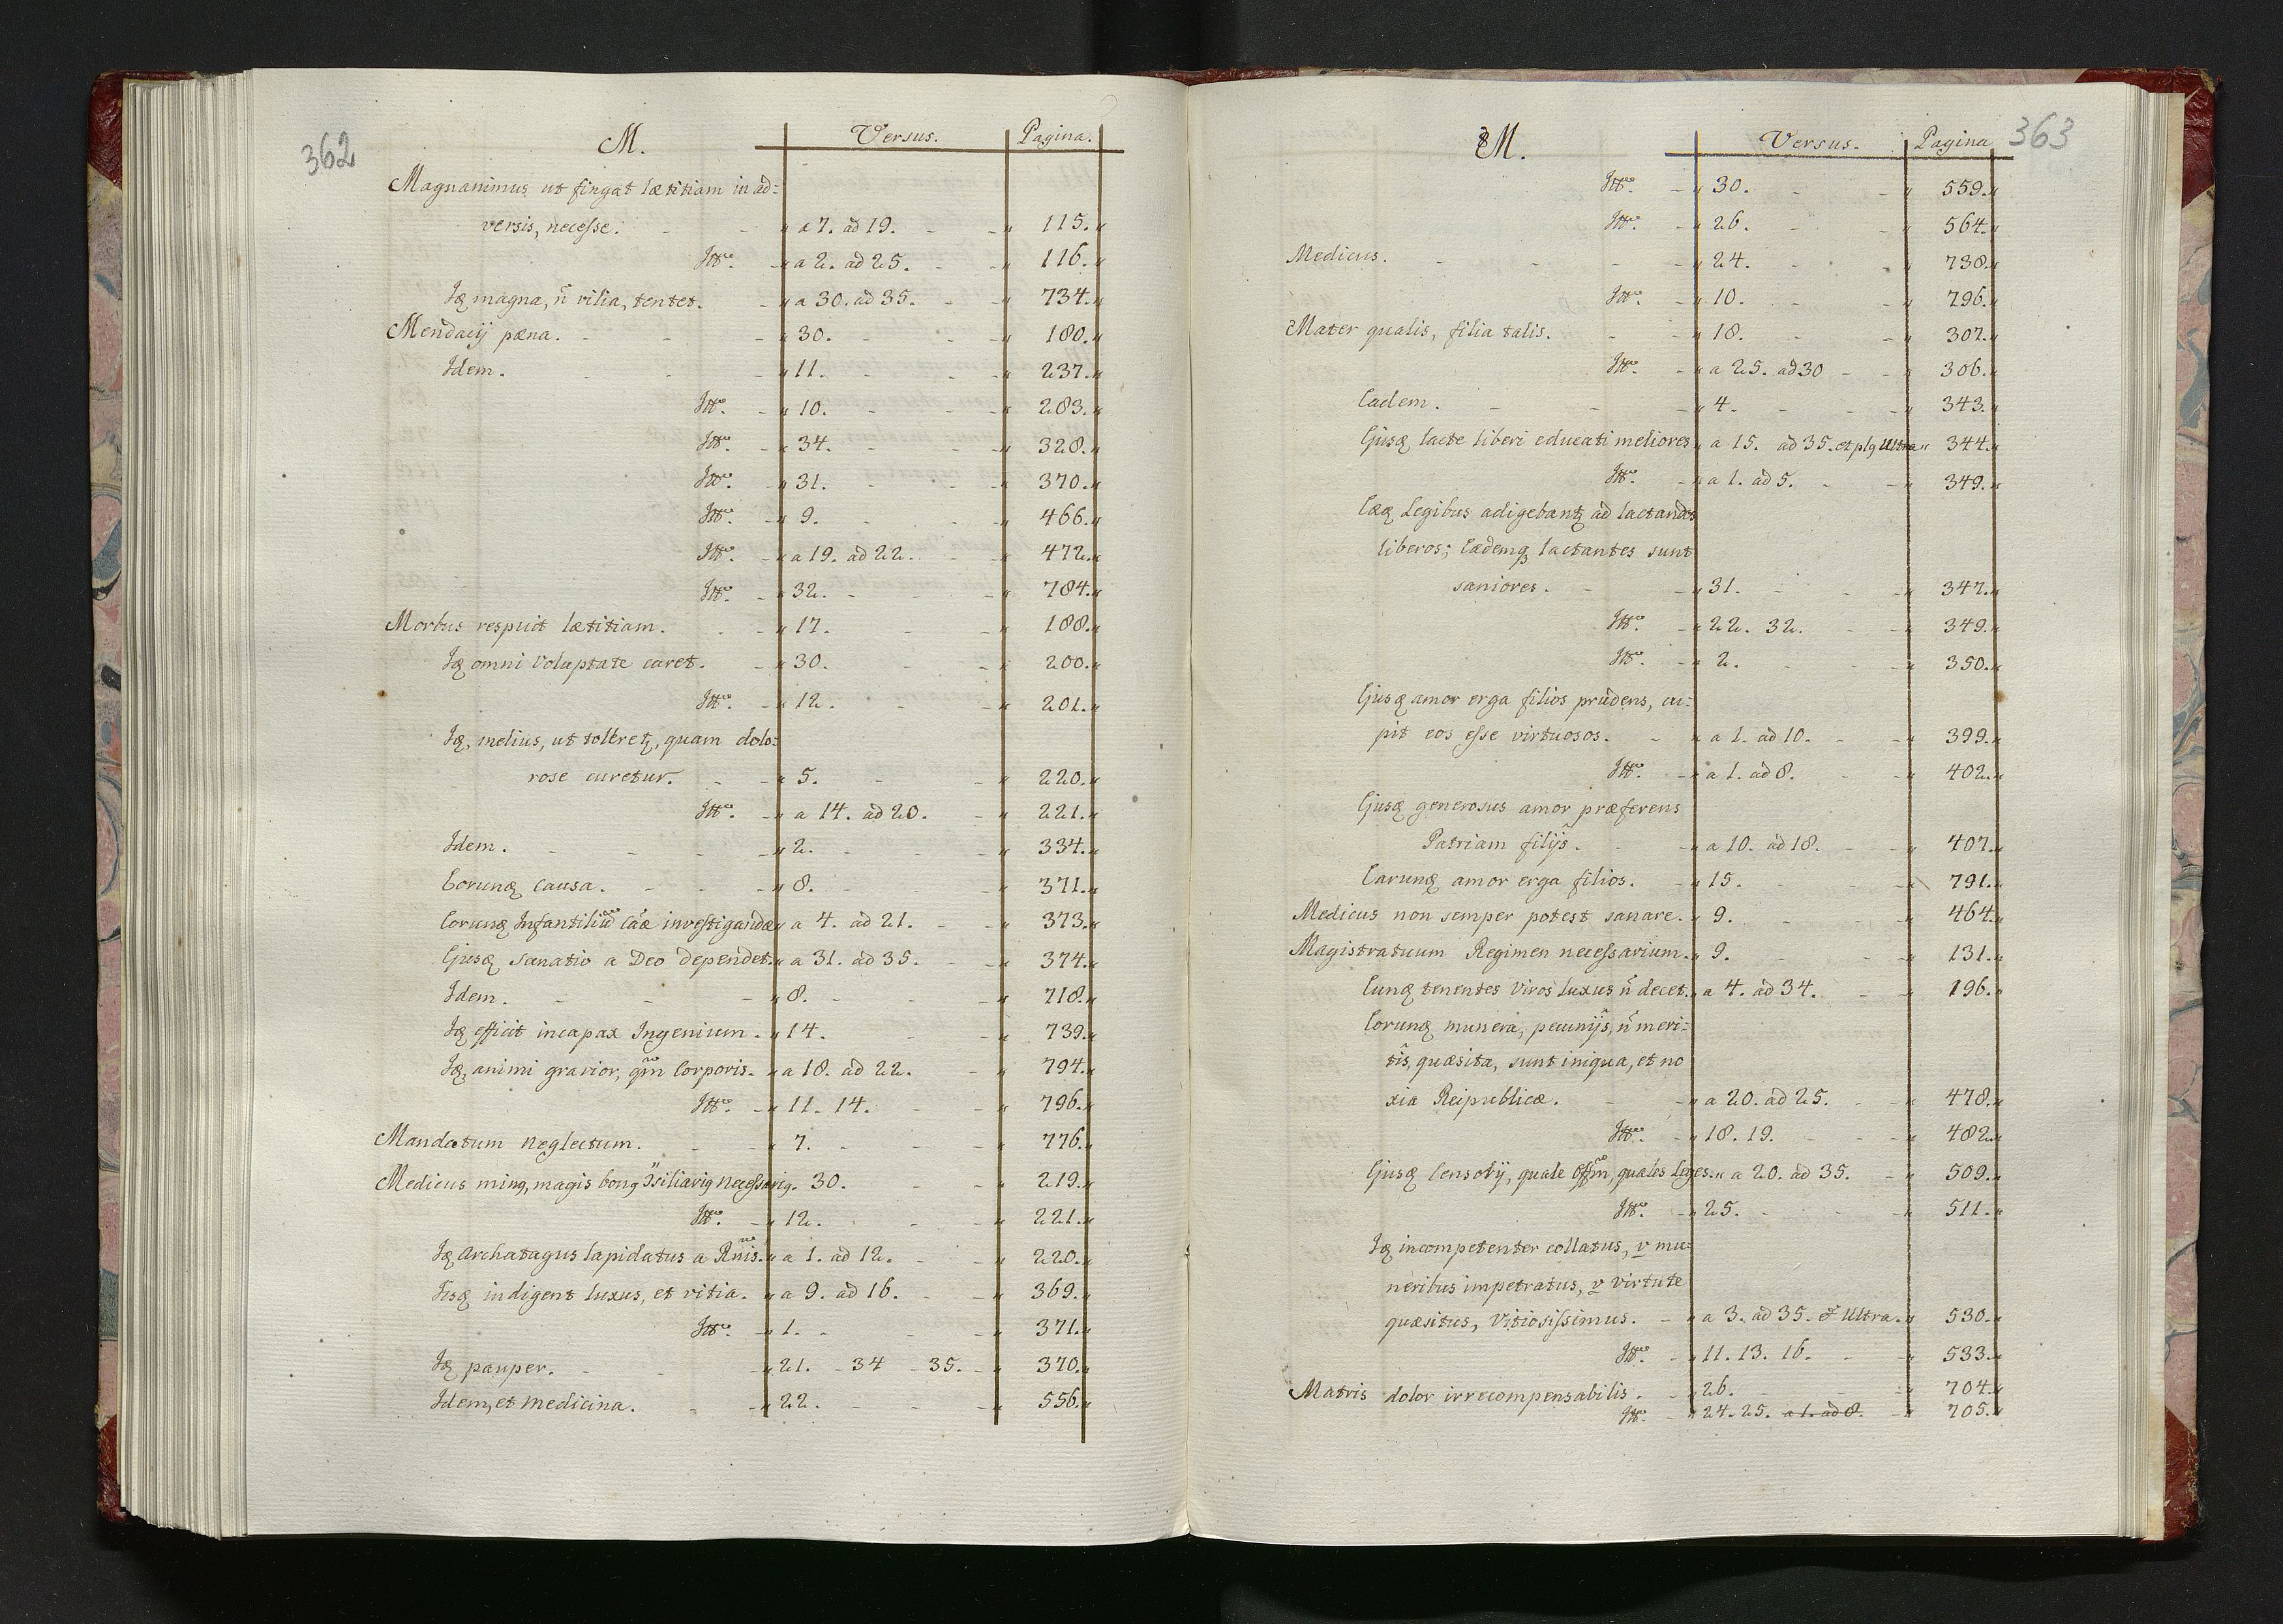 362
M. Versus. Pagina.
Magnanimus ut fingat lætitiam in ad:
versis, necesse. - - " a 7. ad 19. - - " 115. "
Itt͠o. - " a 2. ad 25. - - " 116. "
Iq̨ magna, n̄ vilia, tentet. - " a 30. ad 35. - - " 734. "
Mendacij pæna. - - - " 30. - - - " 180. "
Idem. - - - " 11. - - - " 237. "
Itt͠o. - " 10. - - - " 283. "
Itt͠o. - " 34. - - - " 328. "
Itt͠o. - " 31. - - - " 370. "
Itt͠o. - " 9. - - - " 466. "
Itt͠o. - " a 19. ad 22. - - " 472. "
Itt͠o. - " 32. - - - " 784. "
Morbus respuit lætitiam. - - " 17. - - " 188. "
Iq̨ omni voluptate caret. - " 30. - - " 200. "
Itt͠o. - " 12. - - " 201. "
Iq̨, melius, ut tolletq̨, quam dolo:
rose curetur. - - " 5. - - " 220. "
Itt͠o. - " a 14. ad 20. - " 221. "
Idem. - - - - " 2. - - - " 334. "
Eorunq̨ causa. - - - " 8. - - - " 371. "
Eorunq̨ Infantiliũ cãæ investigandæ " a 4. ad 21. - " 373. "
Ejusq̨ sanatio a Deo dependet. " a 31. ad 35. - - " 374. "
Idem. - - - " 8. - - - " 718. "
Iq̨ efficit incapax Ingenium. - " 14. - - " 739. "
Iq̨, animi gravior, qm̃ Corporis. - " a 18. ad 22. - " 794. "
Itt͠o. - " 11. 14. - - " 796. "
Mandatum neglectum. - - " 7. - - - " 776. "
Medicus minq̨, magis bonq̨ ɔsiliariq̨ necessariq̨. 30. - - " 219. "
Itt͠o. - " 12. - - " 221. "
Iq̨ Archatagus lapidatus a Rñis. " a 1. ad 12. - - " 220. "
Iisq̨ indigent luxus, et vitia. " a 9. ad 16. - - " 369. "
Itt͠o. - " 1. - - - " 371. "
Iq̨ pauper. - - - " 21. - 34 - 35. - " 370. "
Idem, et medicina. - - " 22. - - - " 556. "
363
M. Versus. Pagina
Itt͠o. - " 30. - - " 559. "
Itt͠o. - " 26. - - " 564. "
Medicus. - - - - " 24. - - " 738. "
Itt͠o. - " 10. - - " 796. "
Mater qualis, filia talis. - - " 18. - - " 302. "
Itt͠o. - " a 25. ad 30 - - " 306. "
Eadem. - - - " 4. - - - " 343. "
Ejusq̨ lacte liberi educati meliores " a 15. ad 35. et plq̨ Ultra " 344. "
Itt͠o. - " a 1. ad 5. - - " 349. "
Eæq̨ Legibus adigebantq̨ ad lactandos
liberos; Eædemq̨ lactantes sunt
saniores. - - " 31. - - " 347. "
Itt͠o. - " 22. 32. - - " 349. "
Itt͠o. - " 2. - - - " 350. "
Ejusq̨ amor erga filios prudens, cu:
pit eos esse virtuosos. - " a 1. ad 10. - - " 399. "
Itt͠o. - " a 1. ad 8. - - " 402. "
Ejusq̨ generosus amor præferens
Patriam filijs. - - " a 10. ad 18. - - " 407. "
Earunq̨ amor erga filios. - " 15. - - - " 791. "
Medicus non semper potest sanare. " 9. - - " 464. "
Magistratuum Regimen necessarium. " 9. - - " 131. "
Eunq̨ tenentes Viros luxus n̄ decet. " a 4. ad 34. - " 196. "
Eorunq̨ munera, pecunijs, n̄ meri:
tis, quæsita, sunt iniqua, et no
xia Reipublicæ. - - " a 20. ad 25. - - " 478. "
Itt͠o. - " 18. 19. - - " 482. "
Ejusq̨ Censorij, quale Offm̃, quales Leges. " a 20. ad 35. - " 509. "
Itt͠o. - " 25. - - - " 511. "
Iq̨ incompetenter collatus, v mu:
neribus impetratus, v virtute
quæsitus, Vitiosissimus. - " a 3. ad 35. & Ultra. " 530. "
Itt͠o. - " 11. 13. 16. - " 533. "
Matris dolor irrecompensabilis. - " 26. - - " 704. "
Itt͠o. - " 24. 25. a 1. ad 8. - " 705. "